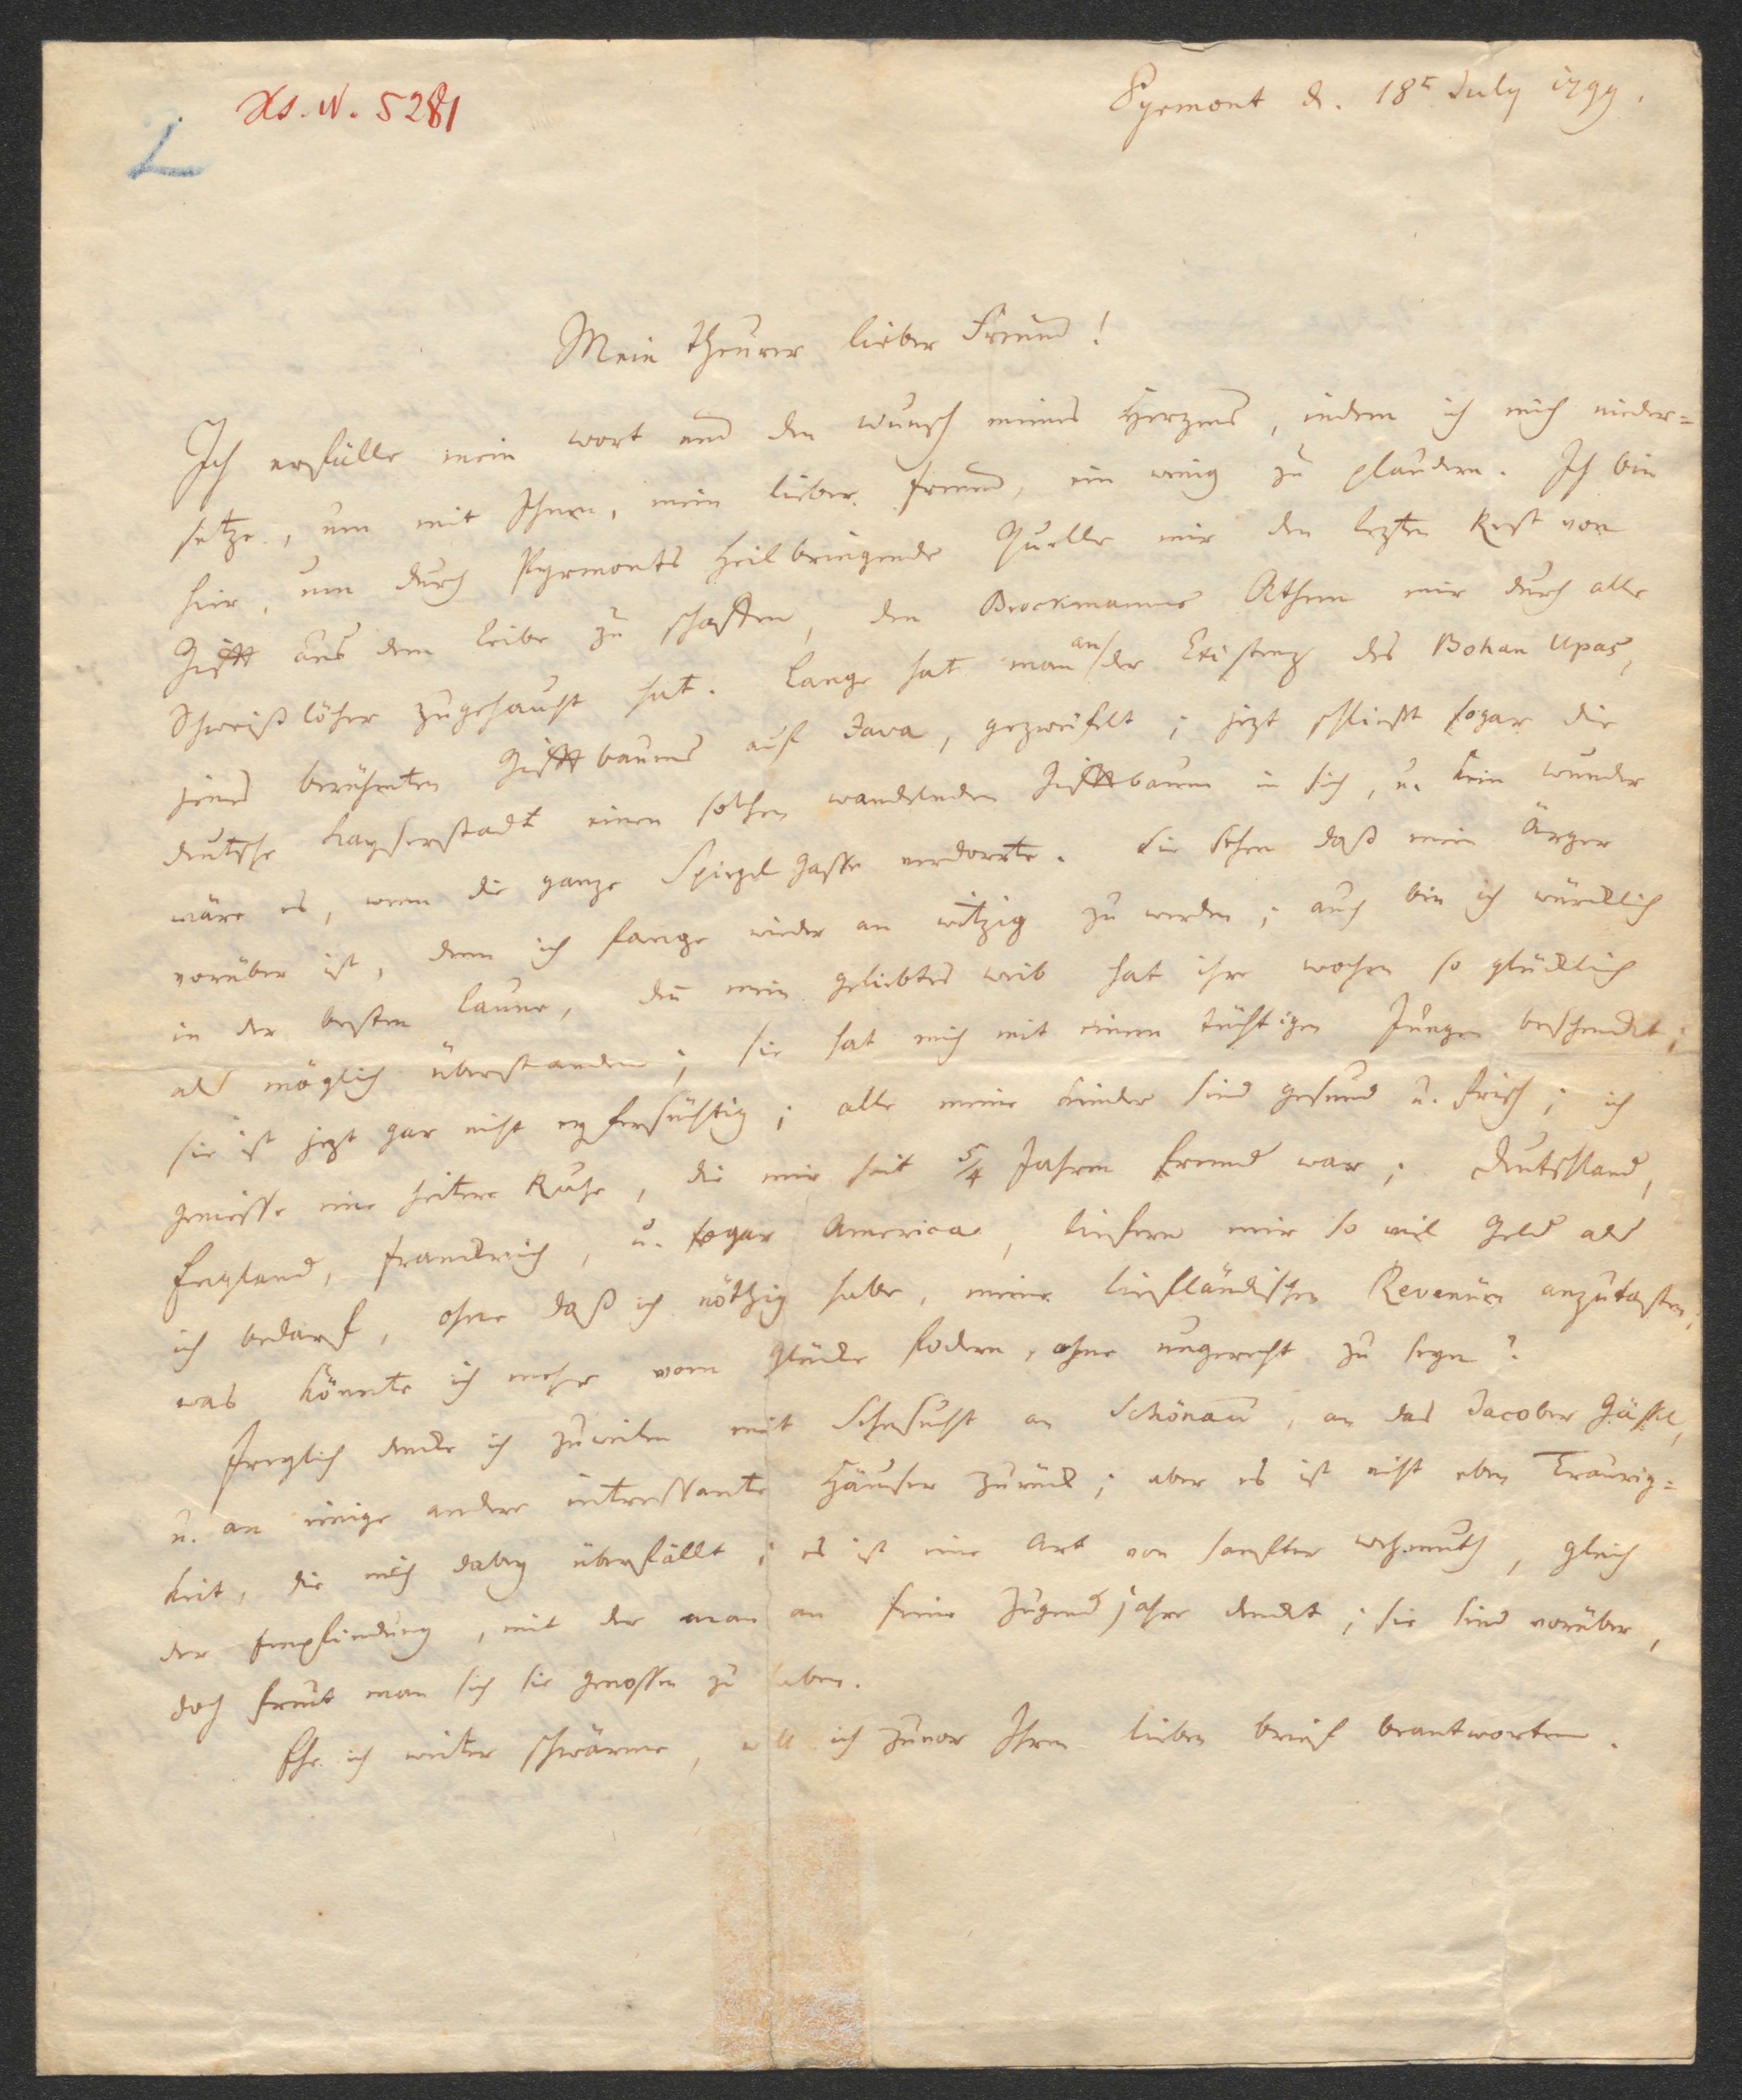 Hs. N. 5281
Pyrmont d. 18t July 1799.
Mein theurer lieber Freund!
Ich erfülle mein Wort und den Wunsch meines Herzens, indem ich mich nieder=
setze, um mit Ihnen, mein lieber Freund, ein wenig zu plaudern. Ich bin
hier, um durch Pyrmonts Heilbringende Quelle mir den lezten Rest von
Gifft aus dem Leibe zu schaffen, den Brockmanns Athem mir durch alle
Schweißlöcher zugehaucht hat. Lange hat man an der Existenz des Bohan Upas,
jenes berühmten Gifftbaums auf Java, gezweifelt; jezt schließt sogar die
deutsche Kayserstadt einen solchen wandelnden Gifftbaum in sich, u. kein Wunder
wäre es, wenn die ganze Spiegel Gasse verdorrte. Sie sehen daß mein Ärger
vorüber ist, denn ich fange wieder an witzig zu werden; auch bin ich würcklich
in der besten Laune, den̄ mein geliebtes Weib hat ihre Wochen so glücklich
als möglich überstanden; sie hat mich mit einem tüchtigen Jungen beschenckt;
sie ist jezt gar nicht eyfersüchtig; alle meine Kinder sind gesund u. frisch; ich
geniesse eine heitere Ruhe, die mir seit 5/4 Jahren fremd war; Deutschland,
England, Franckreich, u. sogar America, liefern mir so viel Geld als
ich bedarf, ohne daß ich nöthig habe, meine liefländischen Revenüen anzutasten;
was könnte ich mehr vom Glücke fodern, ohne ungerecht zu seyn?
Freylich dencke ich zuweilen mit Sehnsucht an Schönau, an das Jacober Gässel,
u. an einige andere intressante Häuser zurück; aber es ist nicht eben Traurig=
keit, die mich dabey überfällt; es ist eine Art von sanfter Wehmuth, gleich
der Empfindung, mit der man an seine Jugendjahre denckt; sie sind vorüber,
doch freut man sich sie genossen zu haben.
Ehe ich weiter schwärme, will ich zuvor Ihren lieben Brief beantworten.